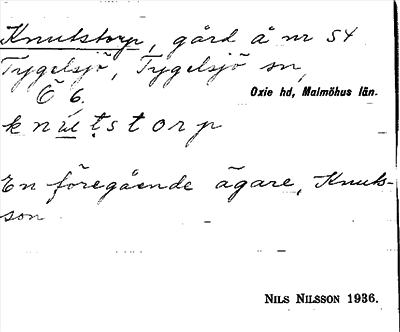 Knutstorp, gård å nr 54
Tygelsjö, Tygelsjö sn,
Ö 6.
Oxie hd, Malmöhus län.
knutstorp
En föregående ägare, Knuts-
son
NILS NILSSON 1936.